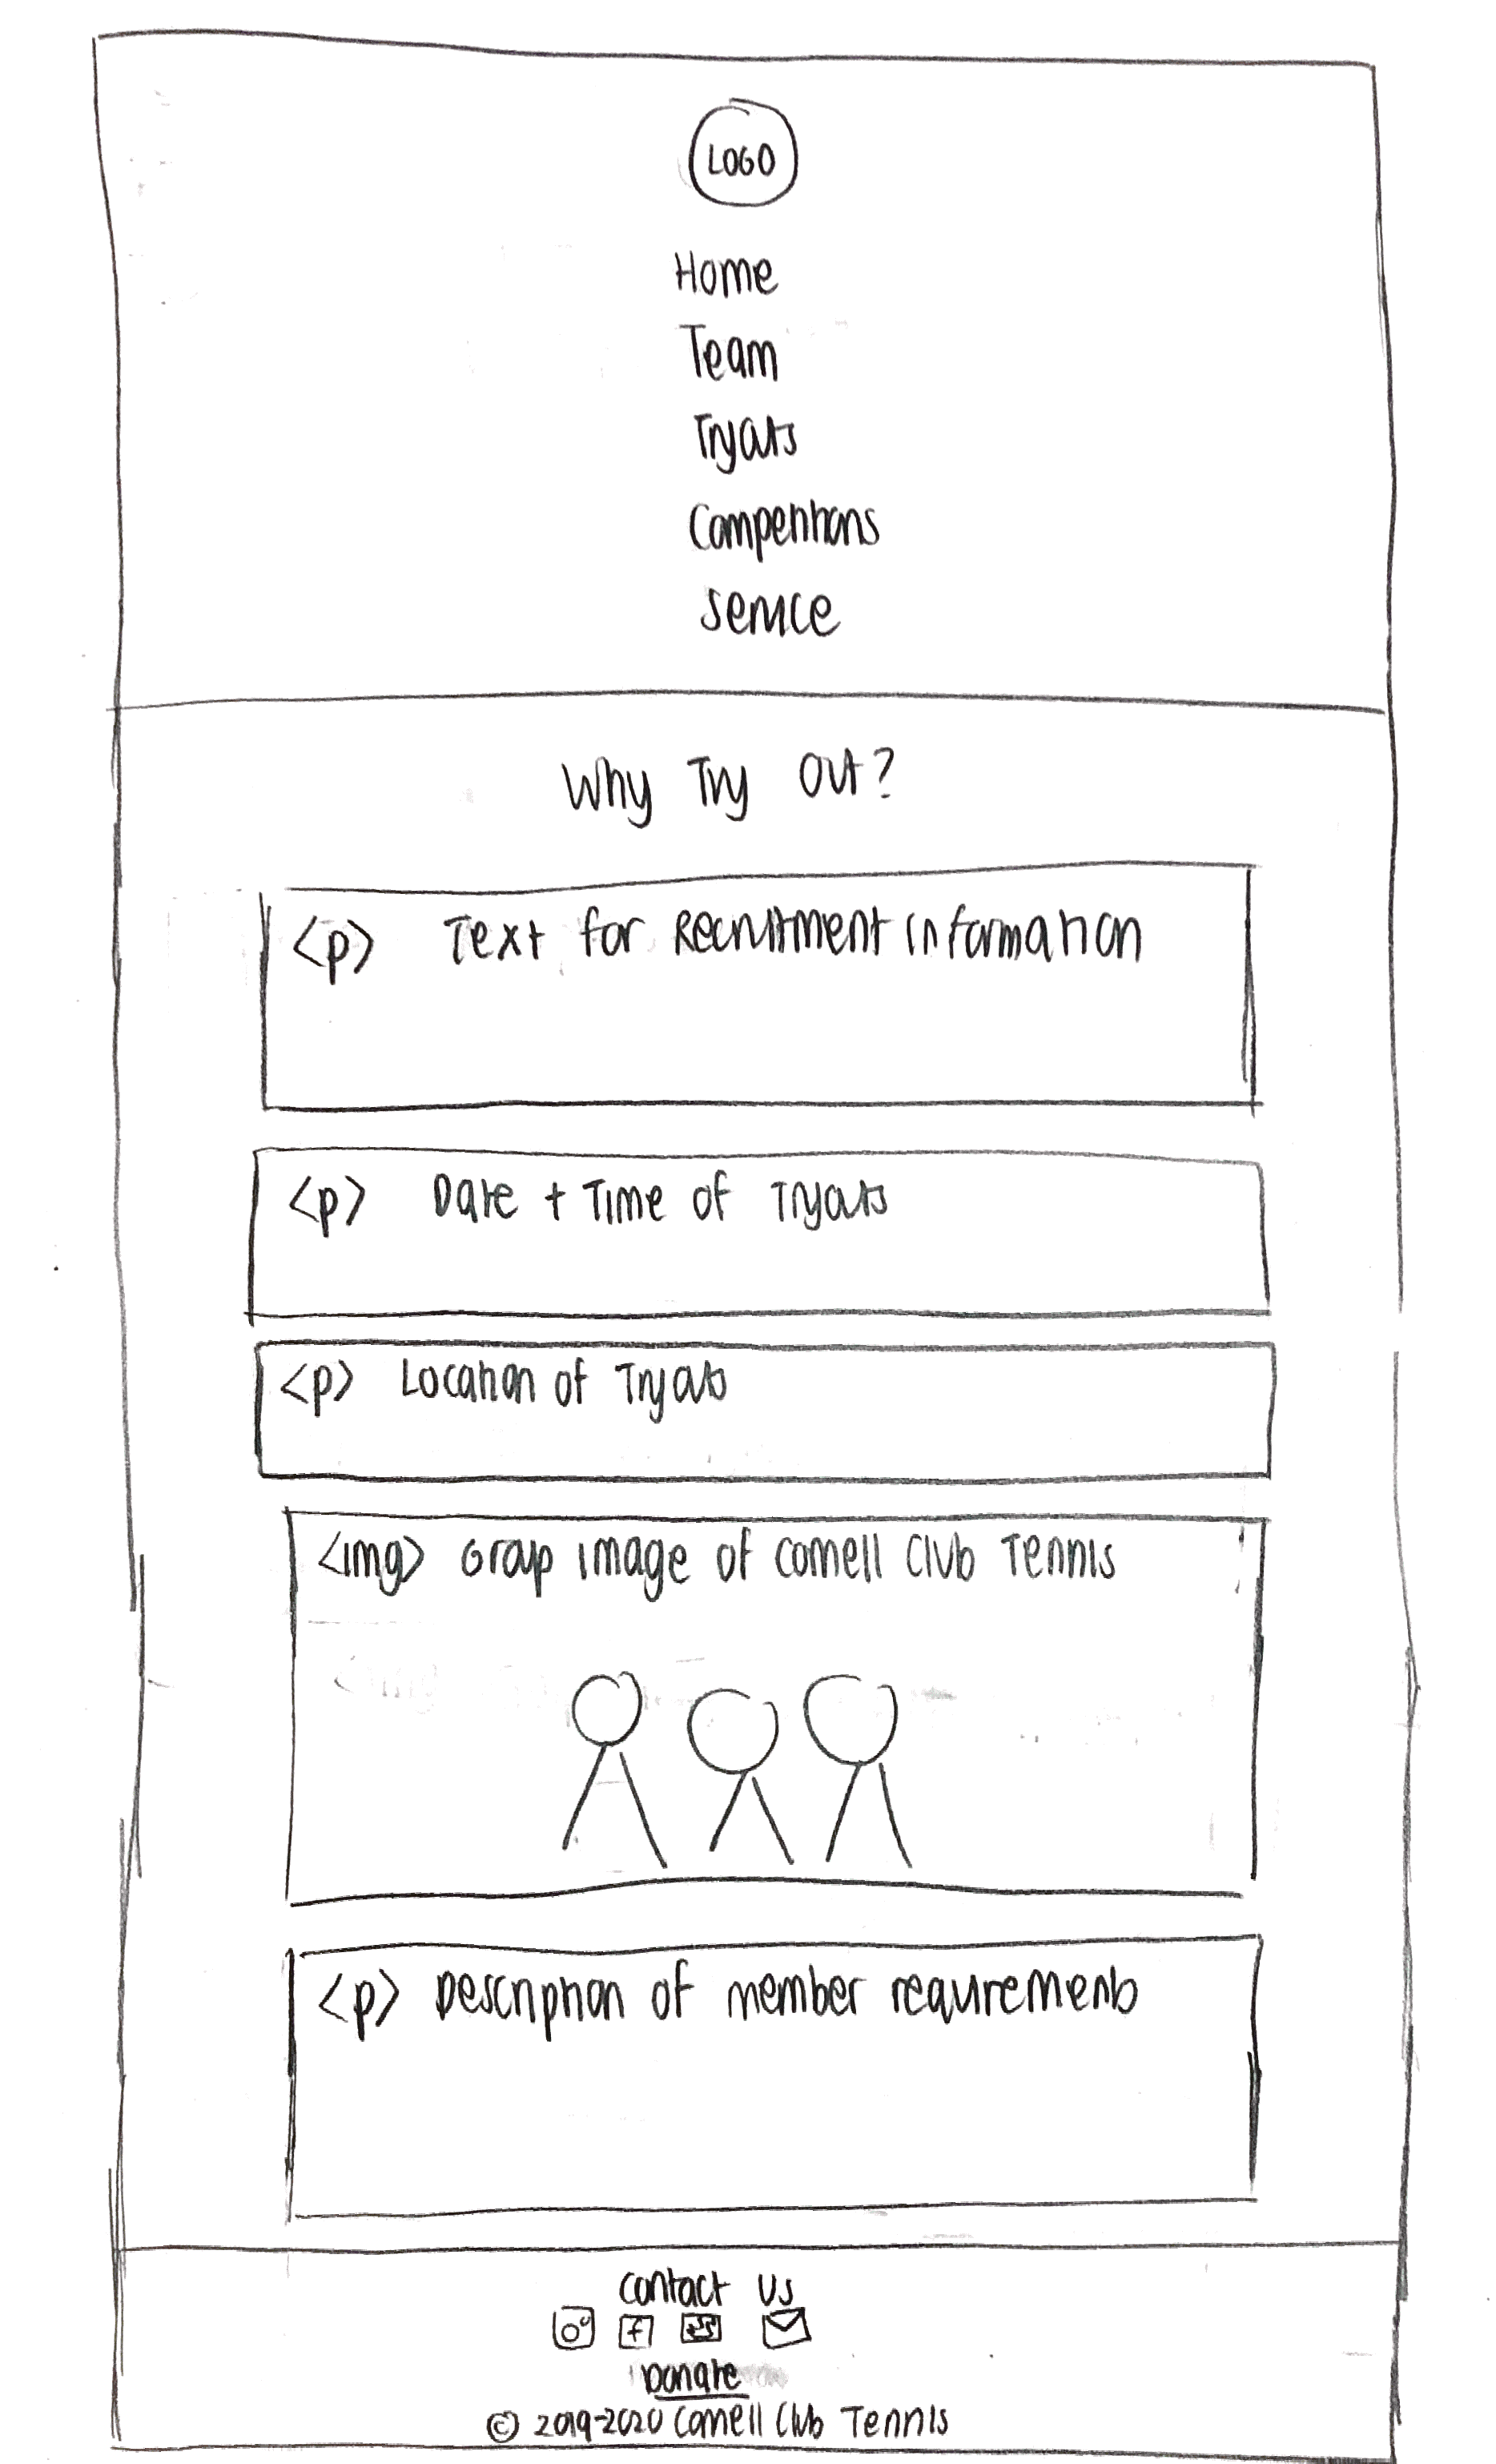 LOGO
Home
Team
Tryouts
Competitions
Service
Why Try Out?
<p> Text for Recruitment information
<p> Date + Time of Tryouts
<p> Location of Tryouts
<img> Group image of Cornell Club Tennis
<p> Description of member requirements
Contact Us
f
Donate
© 2019-2020 Cornell Club Tennis